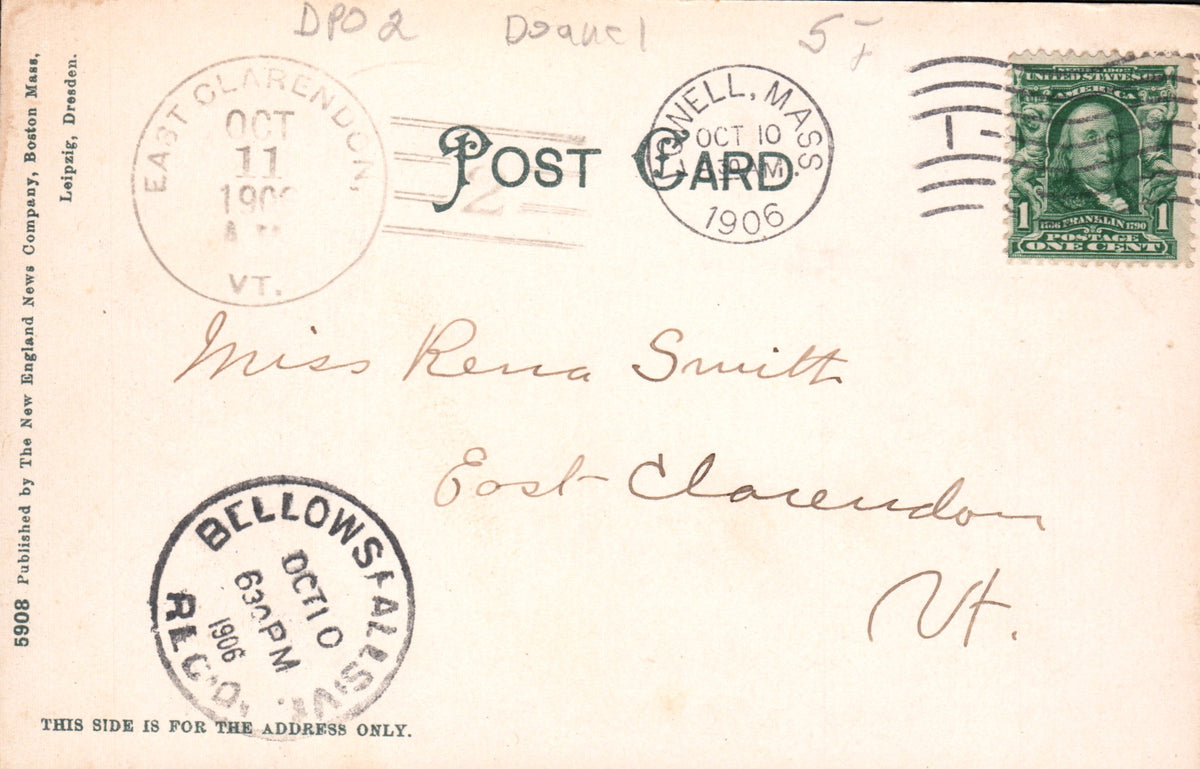 DPO 2
5-
EAST CLARENDON,
OCT
11
190
VT.
POST CARD
2
LOWELL, MASS.
OCT 10
30 AM
1906
SERIES 1902
UNITED STATES OF
AMERICA
1 1706 FRANKLIN 1790 1
POSTAGE
ONE CENT
Miss Rena Smith
East Clarendon
Vt.
BELLOWS FALLS, VT.
OCT 10
630 PM
1906
REC'D.
THIS SIDE IS FOR THE ADDRESS ONLY.
5908 Published by The New England News Company, Boston Mass,
Leipzig, Dresden.